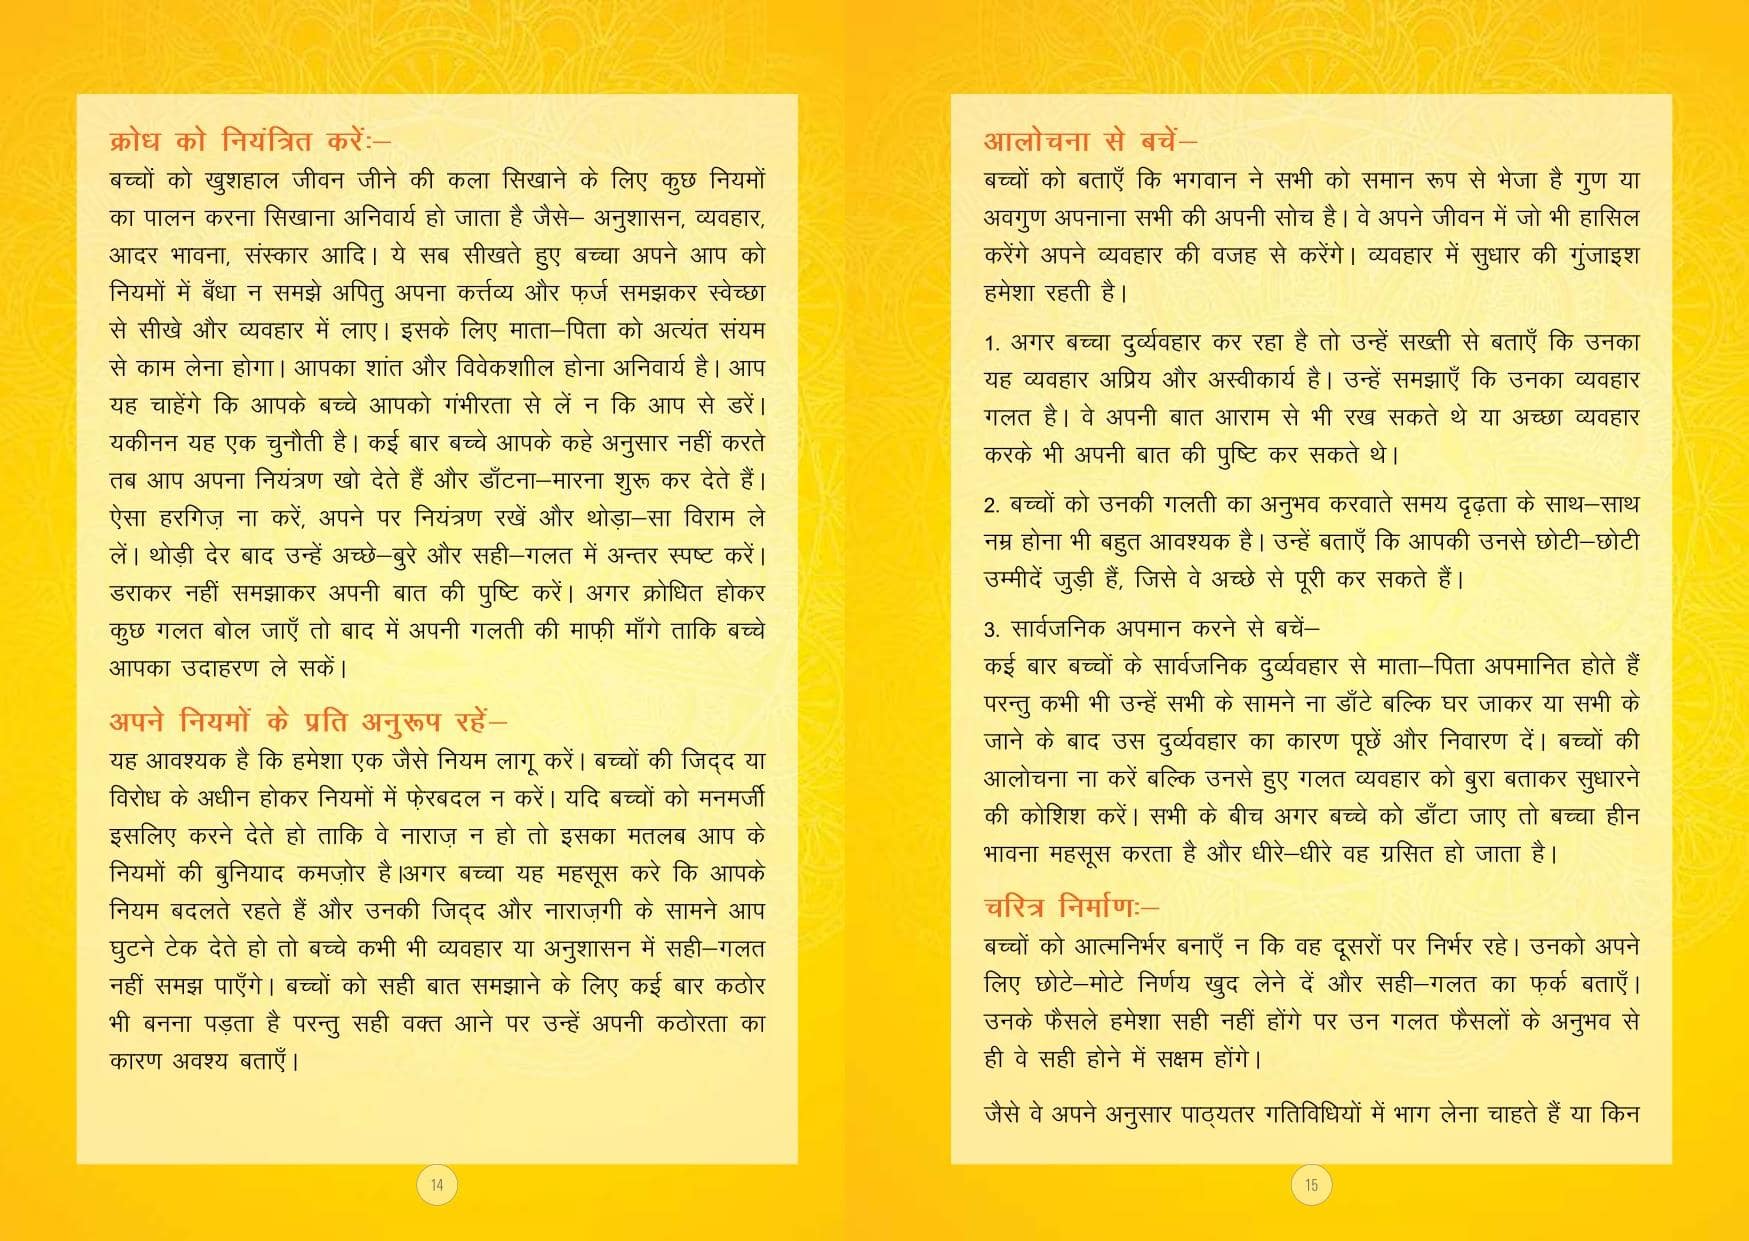 क्रोध को नियंत्रित करें:–
बच्चों को खुशहाल जीवन जीने की कला सिखाने के लिए कुछ नियमों
का पालन करना सिखाना अनिवार्य हो जाता है जैसे– अनुशासन, व्यवहार,
आदर भावना, संस्कार आदि। ये सब सीखते हुए बच्चा अपने आप को
नियमों में बँधा न समझे अपितु अपना कर्त्तव्य और फ़र्ज समझकर स्वेच्छा
से सीखे और व्यवहार में लाए। इसके लिए माता–पिता को अत्यंत संयम
से काम लेना होगा। आपका शांत और विवेकशाील होना अनिवार्य है। आप
यह चाहेंगे कि आपके बच्चे आपको गंभीरता से लें न कि आप से डरें।
यकीनन यह एक चुनौती है। कई बार बच्चे आपके कहे अनुसार नहीं करते
तब आप अपना नियंत्रण खो देते हैं और डाँटना–मारना शुरू कर देते हैं।
ऐसा हरगिज़ ना करें, अपने पर नियंत्रण रखें और थोड़ा–सा विराम ले
लें। थोड़ी देर बाद उन्हें अच्छे–बुरे और सही–गलत में अन्तर स्पष्ट करें।
डराकर नहीं समझाकर अपनी बात की पुष्टि करें। अगर क्रोधित होकर
कुछ गलत बोल जाएँ तो बाद में अपनी गलती की माफ़ी माँगे ताकि बच्चे
आपका उदाहरण ले सकें।
अपने नियमों के प्रति अनुरूप रहें–
यह आवश्यक है कि हमेशा एक जैसे नियम लागू करें। बच्चों की जिद्द या
विरोध के अधीन होकर नियमों में फे़रबदल न करें। यदि बच्चों को मनमर्जी
इसलिए करने देते हो ताकि वे नाराज़ न हो तो इसका मतलब आप के
नियमों की बुनियाद कमज़ोर है।अगर बच्चा यह महसूस करे कि आपके
नियम बदलते रहते हैं और उनकी जिद्द और नाराज़गी के सामने आप
घुटने टेक देते हो तो बच्चे कभी भी व्यवहार या अनुशासन में सही–गलत
नहीं समझ पाएँगे। बच्चों को सही बात समझाने के लिए कई बार कठोर
भी बनना पड़ता है परन्तु सही वक्त आने पर उन्हें अपनी कठोरता का
कारण अवश्य बताएँ।
14
आलोचना से बचें–
बच्चों को बताएँ कि भगवान ने सभी को समान रूप से भेजा है गुण या
अवगुण अपनाना सभी की अपनी सोच है। वे अपने जीवन में जो भी हासिल
करेंगे अपने व्यवहार की वजह से करेंगे। व्यवहार में सुधार की गुंजाइश
हमेशा रहती है।
1. अगर बच्चा दुर्व्यवहार कर रहा है तो उन्हें सख्ती से बताएँ कि उनका
यह व्यवहार अप्रिय और अस्वीकार्य है। उन्हें समझाएँ कि उनका व्यवहार
गलत है। वे अपनी बात आराम से भी रख सकते थे या अच्छा व्यवहार
करके भी अपनी बात की पुष्टि कर सकते थे।
2. बच्चों को उनकी गलती का अनुभव करवाते समय दृढ़ता के साथ–साथ
नम्र होना भी बहुत आवश्यक है। उन्हें बताएँ कि आपकी उनसे छोटी–छोटी
उम्मीदें जुड़ी हैं, जिसे वे अच्छे से पूरी कर सकते हैं।
3. सार्वजनिक अपमान करने से बचें–
कई बार बच्चों के सार्वजनिक दुर्व्यवहार से माता–पिता अपमानित होते हैं
परन्तु कभी भी उन्हें सभी के सामने ना डाँटे बल्कि घर जाकर या सभी के
जाने के बाद उस दुर्व्यवहार का कारण पूछें और निवारण दें। बच्चों की
आलोचना ना करें बल्कि उनसे हुए गलत व्यवहार को बुरा बताकर सुधारने
की कोशिश करें। सभी के बीच अगर बच्चे को डाँटा जाए तो बच्चा हीन
भावना महसूस करता है और धीरे–धीरे वह ग्रसित हो जाता है।
चरित्र निर्माणः–
बच्चों को आत्मनिर्भर बनाएँ न कि वह दूसरों पर निर्भर रहे। उनको अपने
लिए छोटे–मोटे निर्णय खुद लेने दें और सही–गलत का फ़र्क बताएँ।
उनके फैसले हमेशा सही नहीं होंगे पर उन गलत फैसलों के अनुभव से
ही वे सही होने में सक्षम होंगे।
जैसे वे अपने अनुसार पाठ्यतर गतिविधियों में भाग लेना चाहते हैं या किन
15